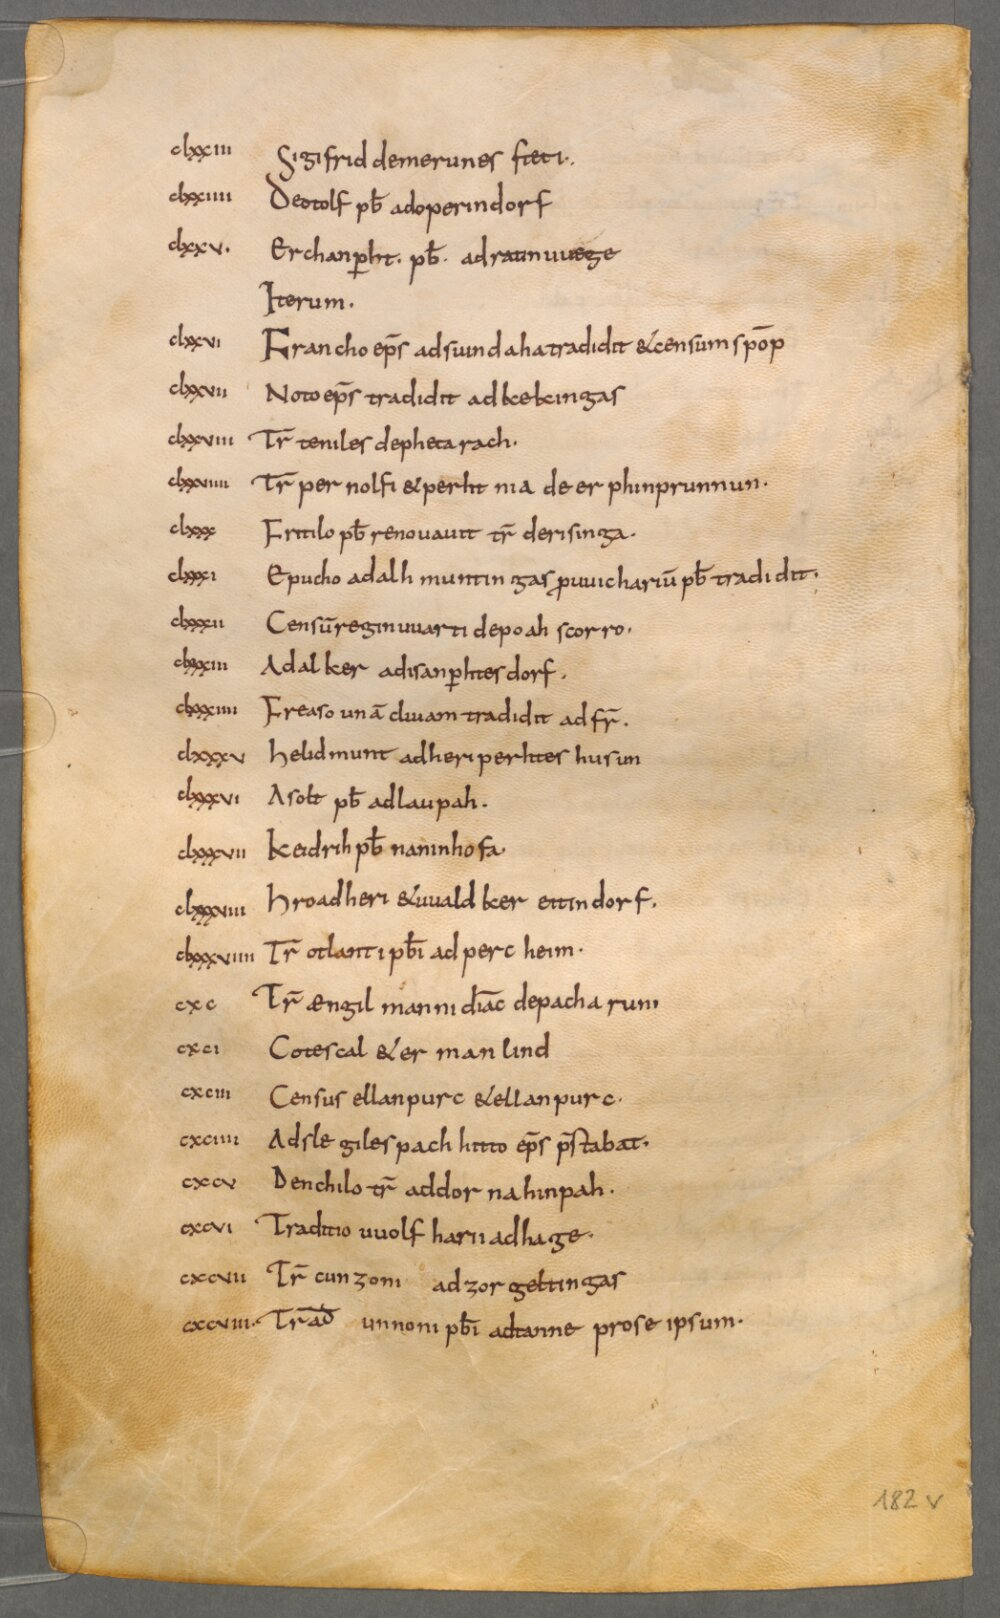 clxxiii Sigifrid demerunes steti.
clxxiiii Deotolf pb̄ adoperindorf
clxxv. Erchanp̱ht. pb̄. adratinuuege
Iterum.
clxxvi Francho ep̄s adsuindahatradidit &censūm spōp
clxxvii Noto ep̄s tradidit adkekingas
clxxviii Tr̄ teniles depheta rach.
clxxviiii Tr̄ per nolfi &perht nia de er phinprunnun.
clxxx Fritilo pb̄ renouauit tr̄ derisinga.
clxxxi Epucho adalh muntin gas ꝓuuichariū pb̄ tradidit.
clxxxii Censū reginuuarti depoah scorro.
clxxxiii Adalker adisanp̱htes dorf.
clxxxiiii Freaso unā cliuam tradidit ad fr̄.
clxxxv helidmunt adheriperhtes husun
clxxxvi Asolt pb̄ adlaupah.
clxxxvii keidrih pb̄ naninhofa.
clxxxviii hroadheri &uualdker ettindorf.
clxxxviiii Tr̄ otlanti pb̄i ad perc heim.
cxc Tr̄ ængilmanni diāc depacharum
cxci Cotescal &er man lind
cxciii Census ellanpurc &ellanpurc.
cxciiii Adsle giles pach hitto ep̄s p̄stabat.
cxcv Denchilo tr̄ addor nahinpah.
cxcvi Traditio uuolfharii adhage.
cxcvii Tr̄ cunzoni adzorgeltingas
cxcviii. Tr̄ad unnoni pb̄i adtanne prose ipsum.
182 v